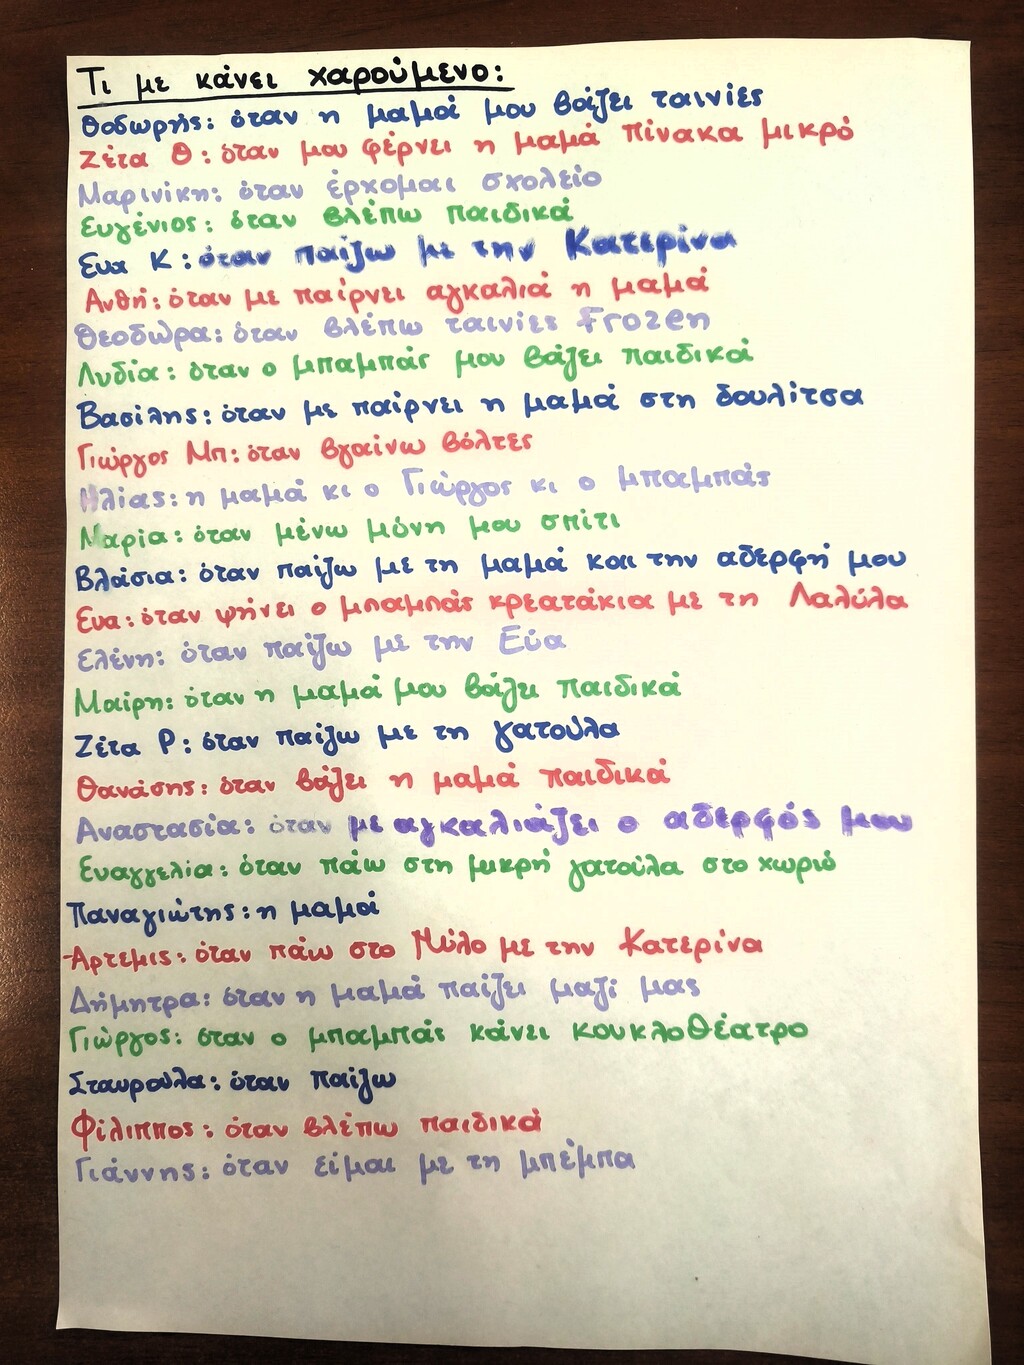 Τι με κάνει χαρούμενο:
Θοδωρής: όταν η μαμά μου βάζει ταινίες
Ζέτα Θ: όταν μου φέρνει η μαμά πίνακα μικρό
Μαρινίκη: όταν έρχομαι σχολείο
Ευγένιος: όταν βλέπω παιδικά
Ευα Κ: όταν παίζω με την Κατερίνα
Ανθή: όταν με παίρνει αγκαλιά η μαμά
Θεοδώρα: όταν βλέπω ταινίες Frozen
Λυδία: όταν ο μπαμπάς μου βάζει παιδικά
Βασίλης: όταν με παίρνει η μαμά στη δουλίτσα
Γιώργος Μπ: όταν βγαίνω βόλτες
Ηλίας: η μαμά κι ο Γιώργος κι ο μπαμπάς
Μαρία: όταν μένω μόνη μου σπίτι
Βλάσια: όταν παίζω με τη μαμά και την αδερφή μου
Ευα: όταν ψήνει ο μπαμπάς κρεατάκια με τη Λαλύλα
Ελένη: όταν παίζω με την Εύα
Μαίρη: όταν η μαμά μου βάζει παιδικά
Ζέτα Ρ: όταν παίζω με τη γατούλα
Θανάσης: όταν βάζει η μαμά παιδικά
Αναστασία: όταν με αγκαλιάζει ο αδερφός μου
Ευαγγελία: όταν πάω στη μικρή γατούλα στο χωριό
Παναγιώτης: η μαμά
Άρτεμις: όταν πάω στο Μύλο με την Κατερίνα
Δήμητρα: όταν η μαμά παίζει μαζί μας
Γιώργος: όταν ο μπαμπάς κάνει κουκλοθέατρο
Σταυρούλα: όταν παίζω
Φίλιππος: όταν βλέπω παιδικά
Γιάννης: όταν είμαι με τη μπέμπα